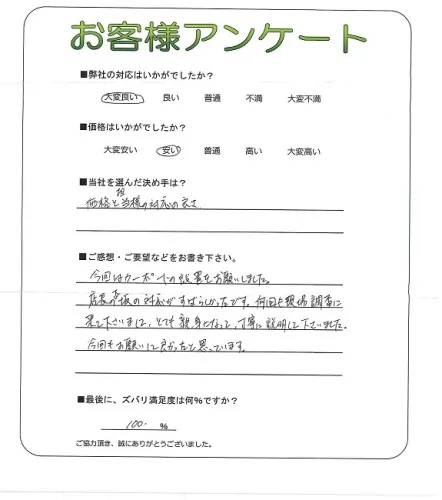 お客様アンケート
■弊社の対応はいかがでしたか？
大変良い 良い 普通 不満 大変不満
■価格はいかがでしたか？
大変安い 安い 普通 高い 大変高い
■当社を選んだ決め手は？
価格と担当様の対応の良さ
■ご感想・ご要望などをお書き下さい。
今回はカーポートの設置をお願いしました。
店長の 対応がすばらしかったです。何回も現場調査に
来て下さいまして、とても親身になって、丁寧に説明して下さいました。
今回もお願いして良かったと思っています。
■最後に、ズバリ満足度は何％ですか？
100. ％
ご協力頂き、誠にありがとうございました。